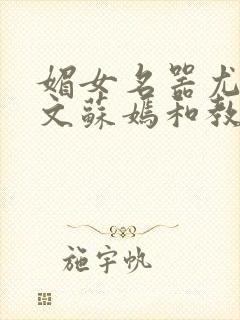 媚女名器尤
文蘇媽和教
施宇帆